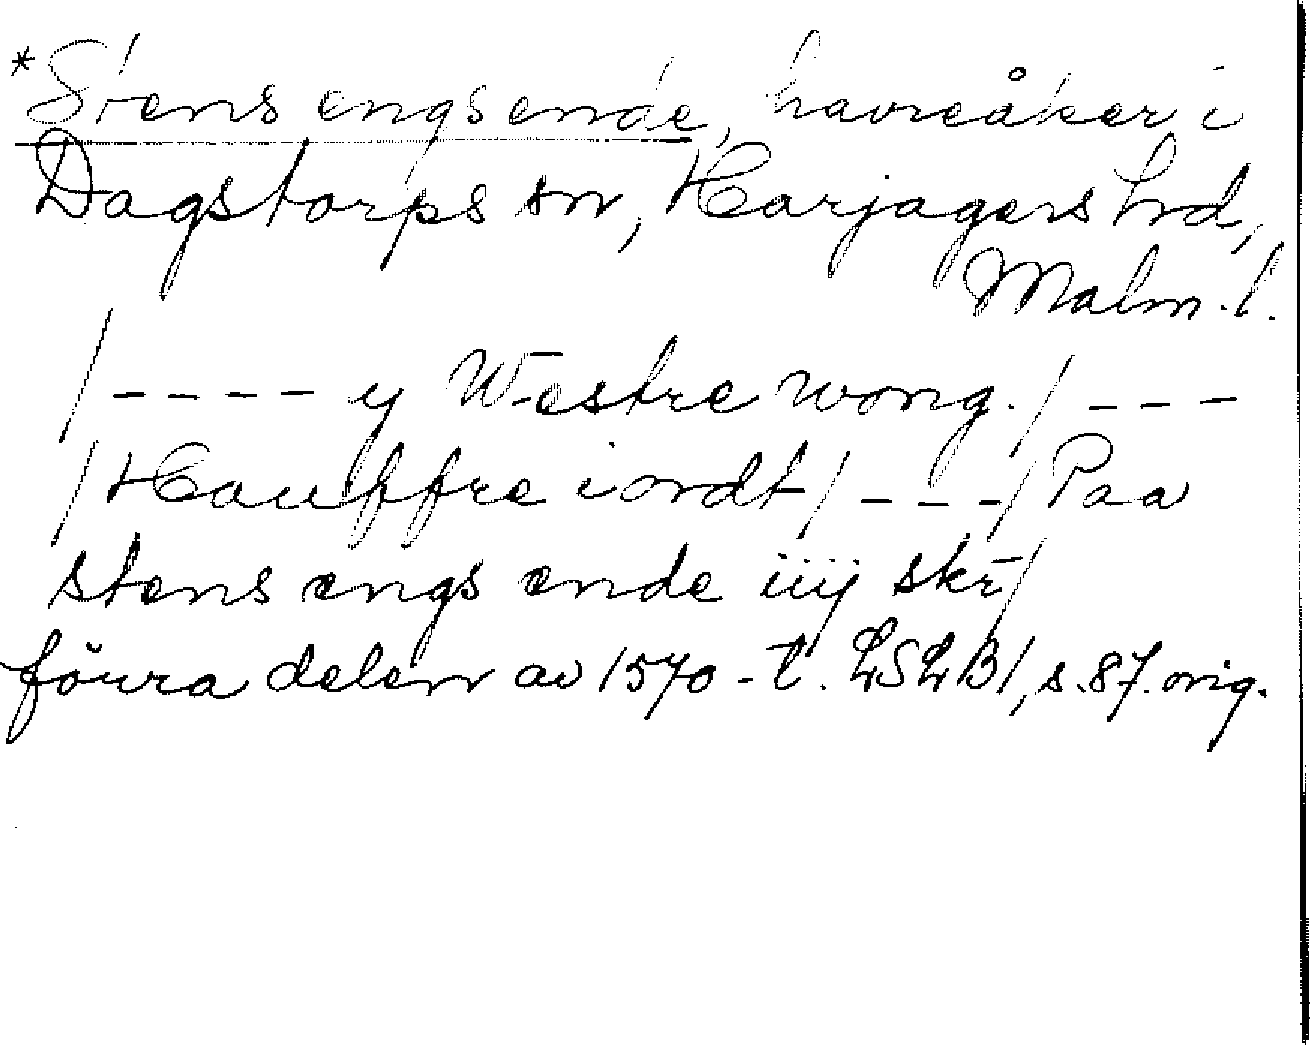 *Stens engsende, havreåker i
Dagstorps sn, Harjagers hrd,
Malm. l.
/---- y Westre wong./ ---
/Hauffre iordt/ ---/ Paa
stens engs ende iiij skr/
förra delen av 1570-t. LSLB1, s.87. orig.